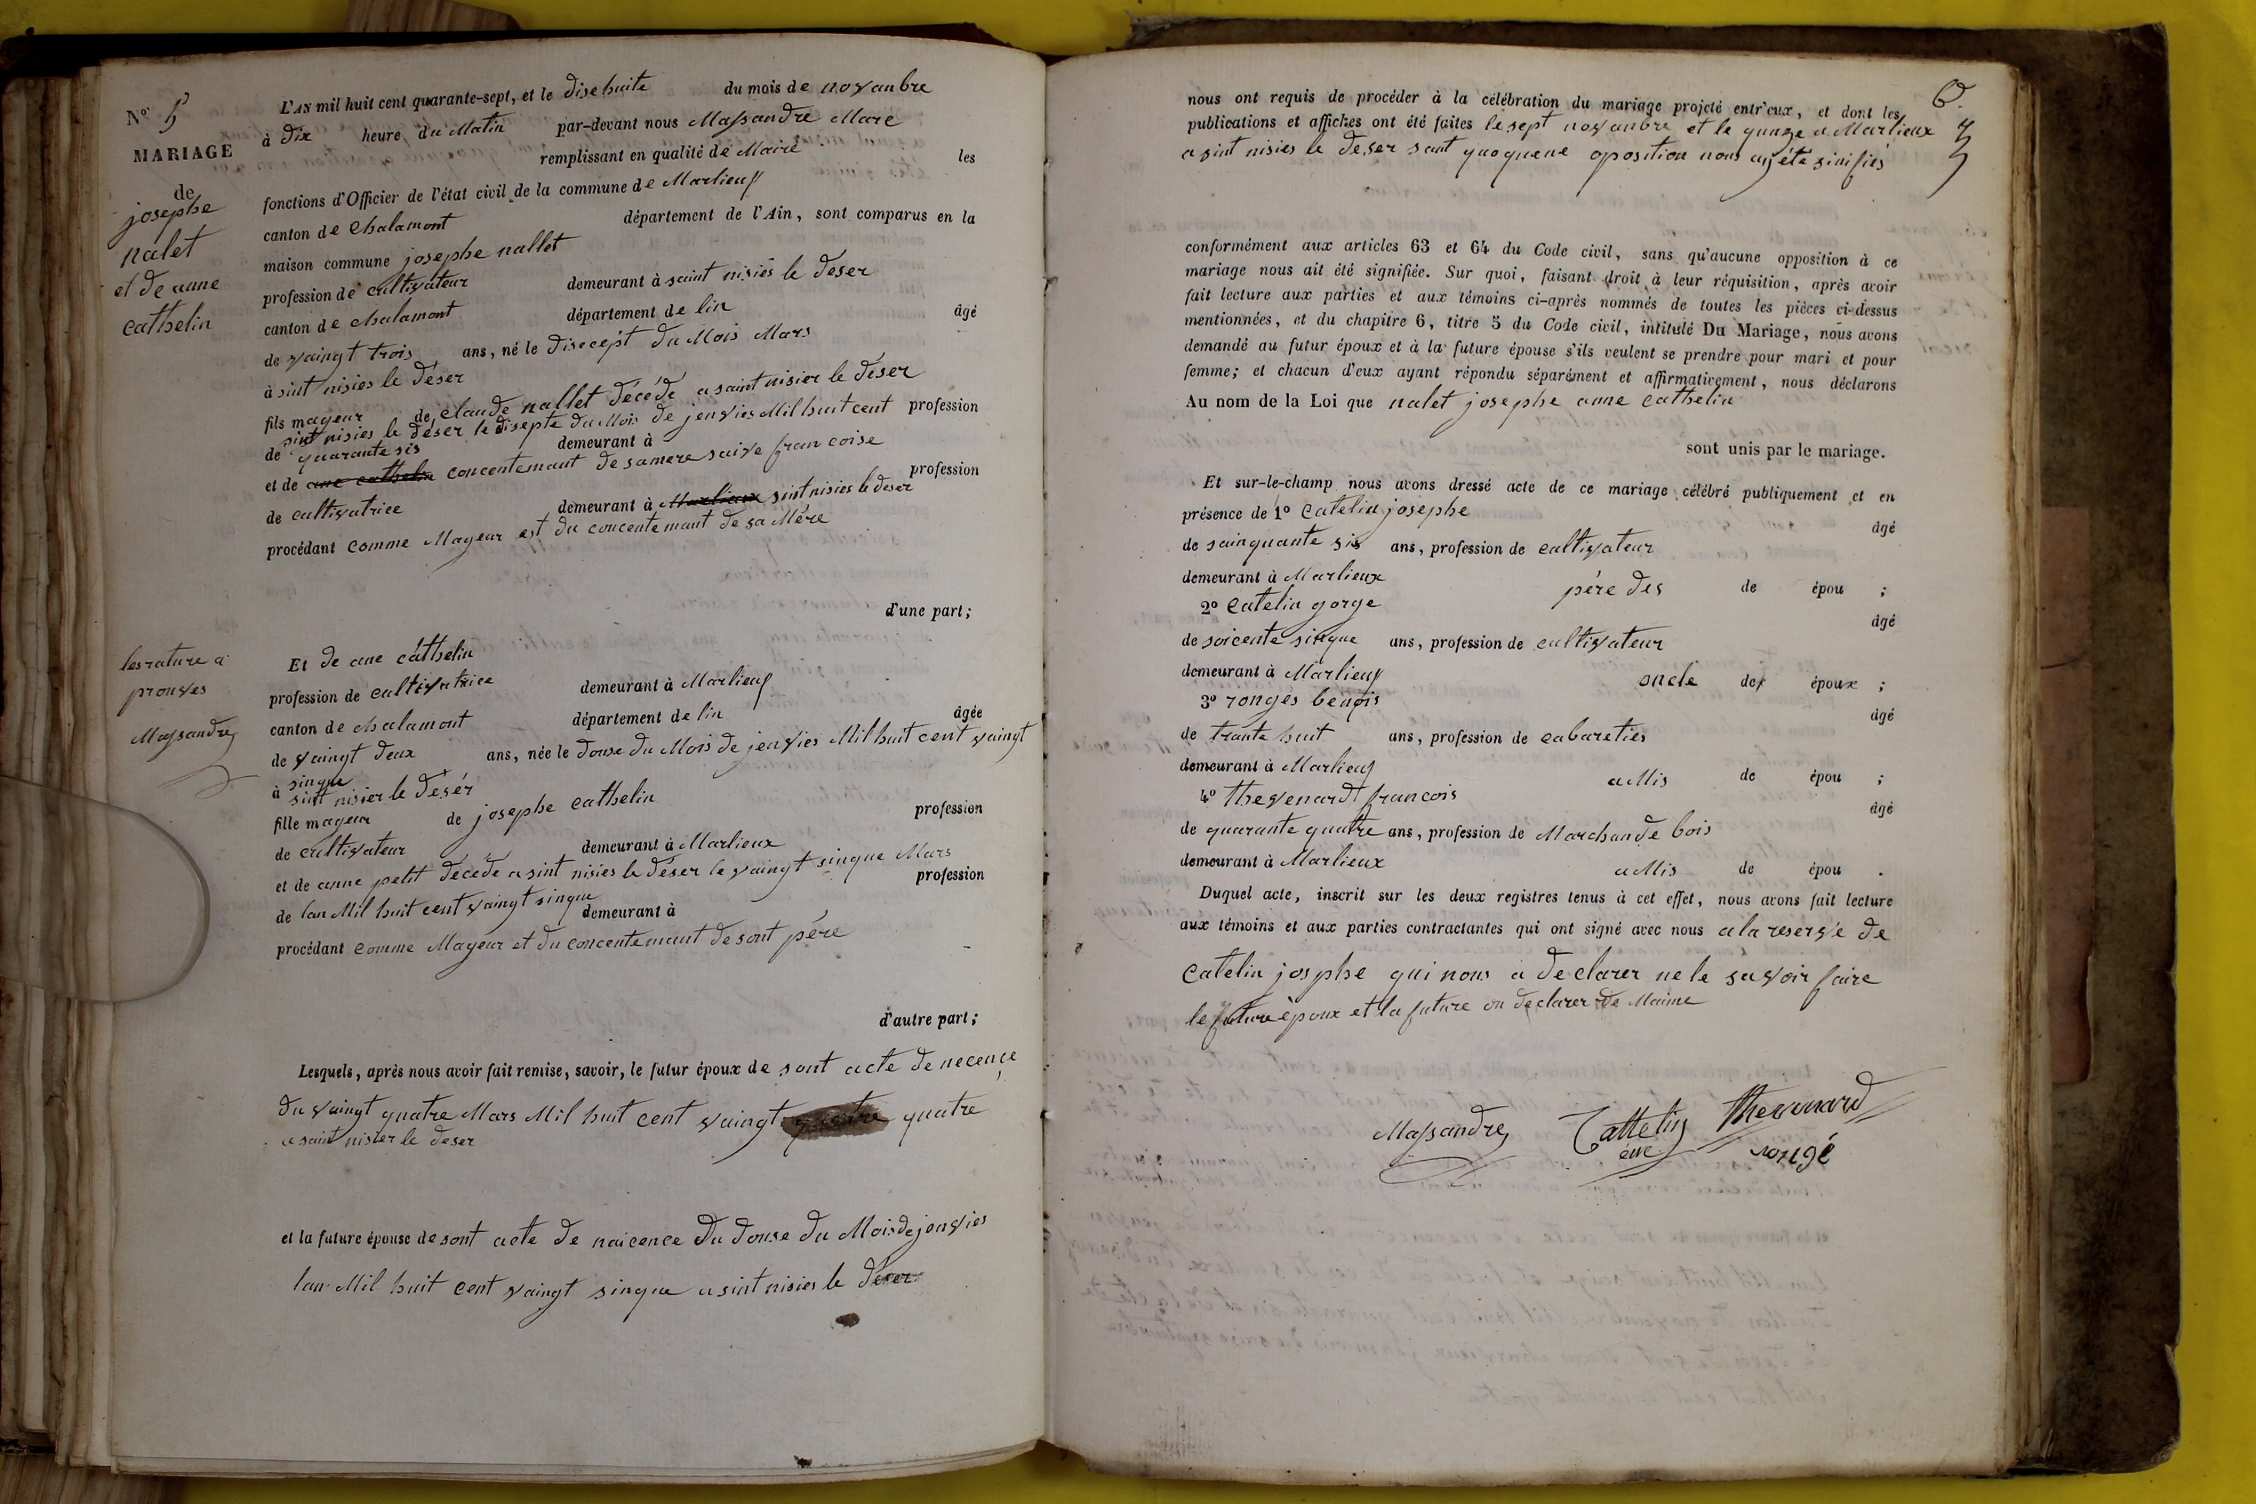 N° 5
MARIAGE
de
josephe
nalet
et de anne
cathelin
L'AN mil huit cent quarante-sept, et le disehuite du mois de novanbre
à dix heure du Matin par-devant nous Massandre Mare
remplissant en qualité de Maire les
fonctions d'Officier de l'état civil de la commune de Marlieux
canton de chalamont département de l'Ain, sont comparus en la
maison commune josephe nallet
profession de cultivateur demeurant à saint nisies le deser
canton de chalamont département de lin âgé
de vaingt trois ans, né le disecépt du Mois Mars
à sint nisies le déser
fils mageur de claude nallet décédé a saint nisier le déser
sint nisies le déser le disepte du Mois de jenvies Mil huit cent profession
de quarante sis demeurant à
et de ane cathelin concentemant de samere saive francoise profession
de cultivatrice demeurant à Marlieux sint nisies le deser
procédant comme Mageur est du concentemant de sa Mére
d'une part;
les rature a
prouves
Massandre
Et de ane cathelin
profession de cultivatrice demeurant à Marlieux
canton de chalamont département de lin âgée
de vaingt deux ans, née le douse du Mois de jenvies Mil huit cent vaingt
singue
à sint nisier le déser
fille mageur de josephe cathelin profession
de cultivateur demeurant à Marlieux
et de anne petit décédé a sint nisies le déser le vaingt singue Mars profession
de lan Mil huit cent vaingt singue demeurant à
procédant comme Mageur et du concentemant de sont pére
d'autre part;
Lesquels, après nous avoir fait remise, savoir, le futur époux de sont acte de necence
du vaingt quatre Mars Mil huit cent vaingt quatre
a saint nisier le deser
et la future épouse de sont acte de naicence du douse du Mois de jenvies
lan Mil huit cent vaingt singue a sint nisies le déser
6
nous ont requis de procéder à la célébration du mariage projeté entr'eux, et dont les
publications et affiches ont été faites le sept novanbre et le quinze a Marlieux
a sint nisies le deser sant quoquene oposition nous aij été sinifiés
conformément aux articles 63 et 64 du Code civil, sans qu'aucune opposition à ce
mariage nous ait été signifiée. Sur quoi, faisant droit à leur réquisition, après avoir
fait lecture aux parties et aux témoins ci-après nommés de toutes les pièces ci-dessus
mentionnées, et du chapitre 6, titre 5 du Code civil, intitulé Du Mariage, nous avons
demandé au futur époux et à la future épouse s'ils veulent se prendre pour mari et pour
femme; et chacun d'eux ayant répondu séparément et affirmativement, nous déclarons
Au nom de la Loi que nalet josephe anne cathelin
sont unis par le mariage.
Et sur-le-champ nous avons dressé acte de ce mariage célébré publiquement et en
présence de 1° catelin josephe âgé
de sainquante sis ans, profession de cultivateur
demeurant à Marlieux pére des de épou ;
2° catelin gorge âgé
de soicente singue ans, profession de cultivateur
demeurant à Marlieux oncle des époux ;
3° ronges benois âgé
de trante huit ans, profession de cabareties
demeurant à Marlieux aMis de épou ;
4° thevenard francois âgé
de quarante quatre ans, profession de Marchande bois
demeurant à Marlieux aMis de épou .
Duquel acte, inscrit sur les deux registres tenus à cet effet, nous avons fait lecture
aux témoins et aux parties contractantes qui ont signé avec nous a la reservé de
catelin josphe qui nous a declarer ne le savoir faire
le future époux et la future on declarer de Maime
Massandre Cattelin Thevenard
rougé